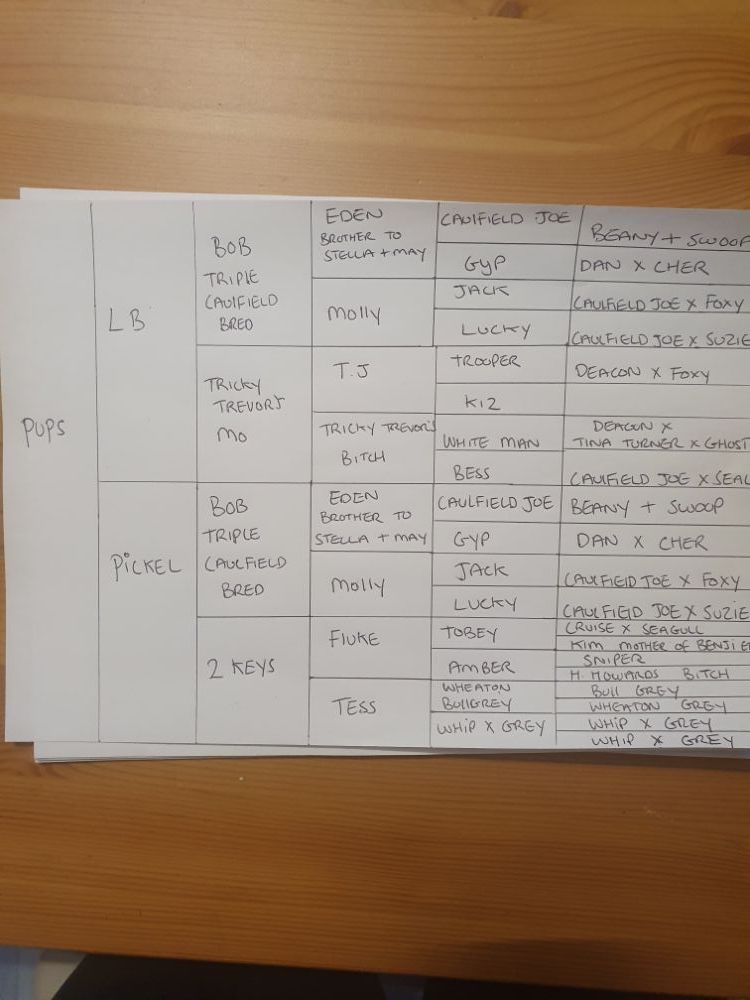 PUPS
LB
BOB
TRIPLE
CAULFIELD
BRED
EDEN
BROTHER TO
STELLA + MAY
CAULFIELD JOE
BEANY + SWOOP
GYP
DAN X CHER
MOLLY
JACK
CAULFIELD JOE X FOXY
LUCKY
CAULFIELD JOE X SUZIE
TRICKY
TREVORS
MO
T.J
TROOPER
DEACON X FOXY
KIZ
TRICKY TREVOR'S
BITCH
WHITE MAN
DEACON X
TINA TURNER X GHOST
BESS
CAULFIELD JOE X SEAL
PICKEL
BOB
TRIPLE
CAULFIELD
BRED
EDEN
BROTHER TO
STELLA + MAY
CAULFIELD JOE
BEANY + SWOOP
GYP
DAN X CHER
MOLLY
JACK
CAULFIELD JOE X FOXY
LUCKY
CAULFIELD JOE X SUZIE
2 KEYS
FLUKE
TOBEY
CRUISE X SEAGULL
KIM MOTHER OF BENJI
AMBER
SNIPER
H. HOWARDS BITCH
TESS
WHEATON
BULLGREY
BULL GREY
WHEATON GREY
WHIP X GREY
WHIP X GREY
WHIP X GREY